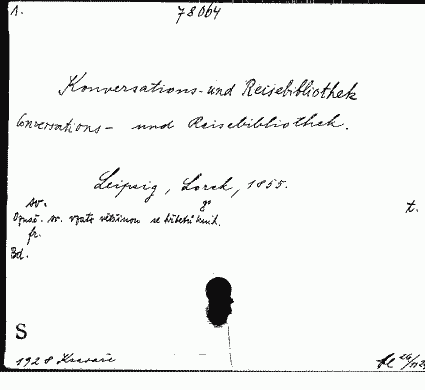 1. 78064
Konversations- und Reisebibliothek
Conversations- und Reisebibliothek.
Leipzig, Lorck, 1855.
sv. 8° t.
Označ. sv. vzato většinou se hřbetů knih.
fr.
Bd.
S
1928 Kravaře